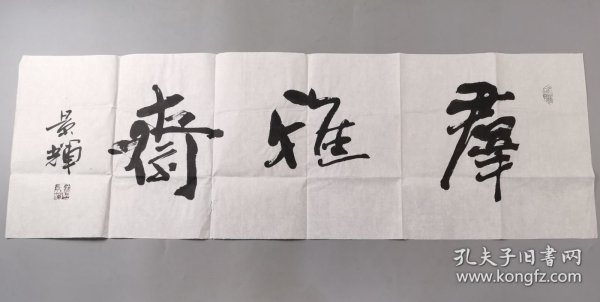 羣雅齋
景輝
孔夫子旧书网
www.kongfz.com